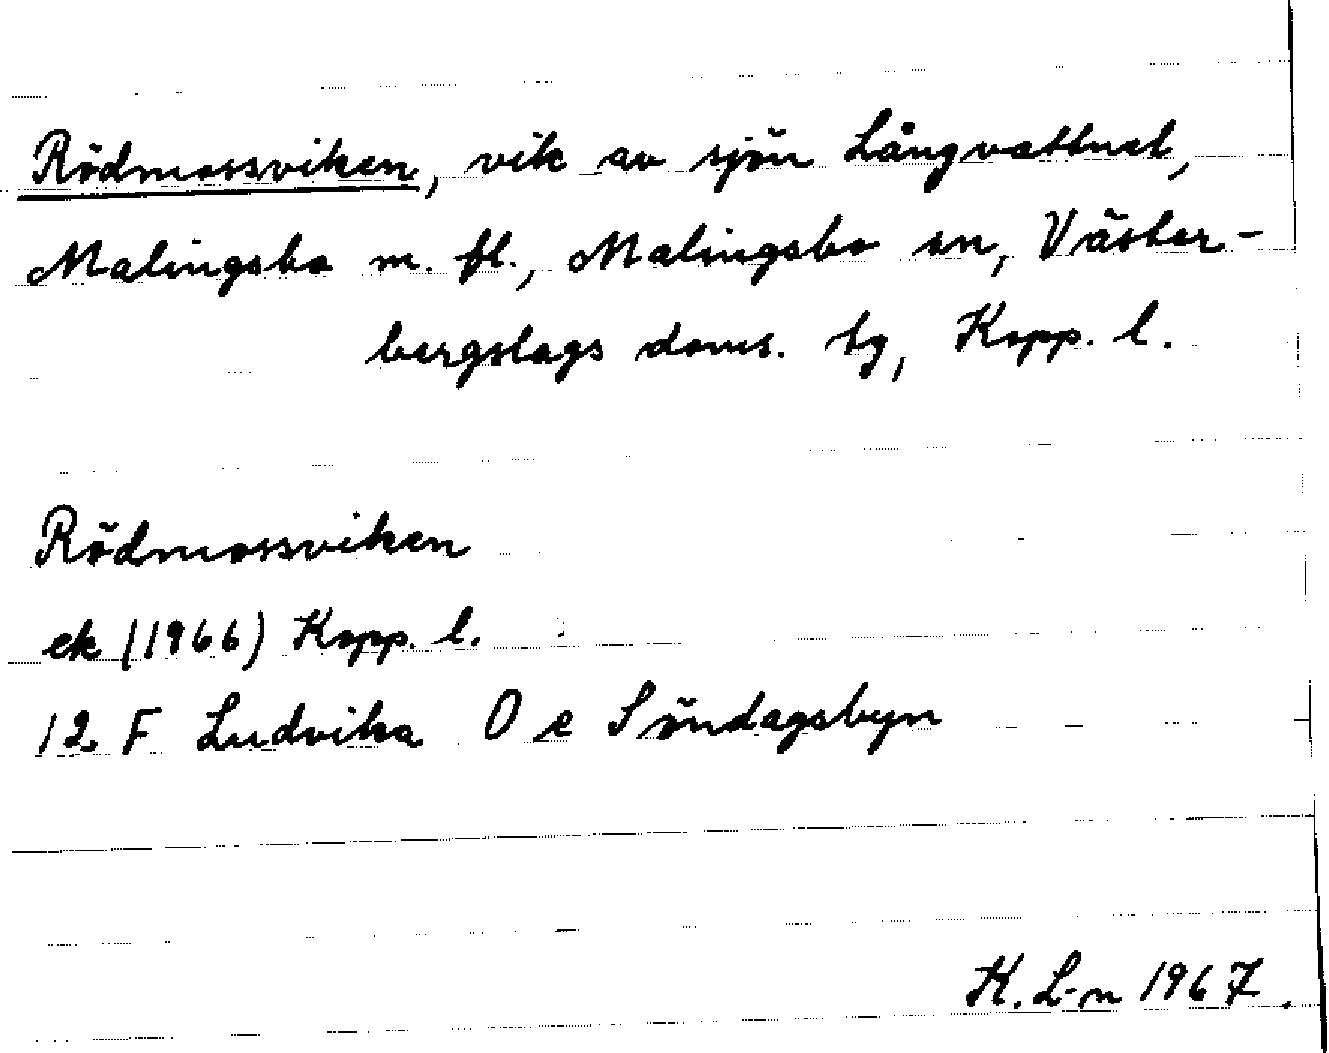 Rödmossviken, vik av sjön Långvattnet,
Malingsbo m. fl., Malingsbo sn, Väster-
bergslags doms. tg, Kopp. l.
Rödmossviken
ek (1966) Kopp. l.
12 F Ludvika O e Söndagsbyn
K. L-n 1967.